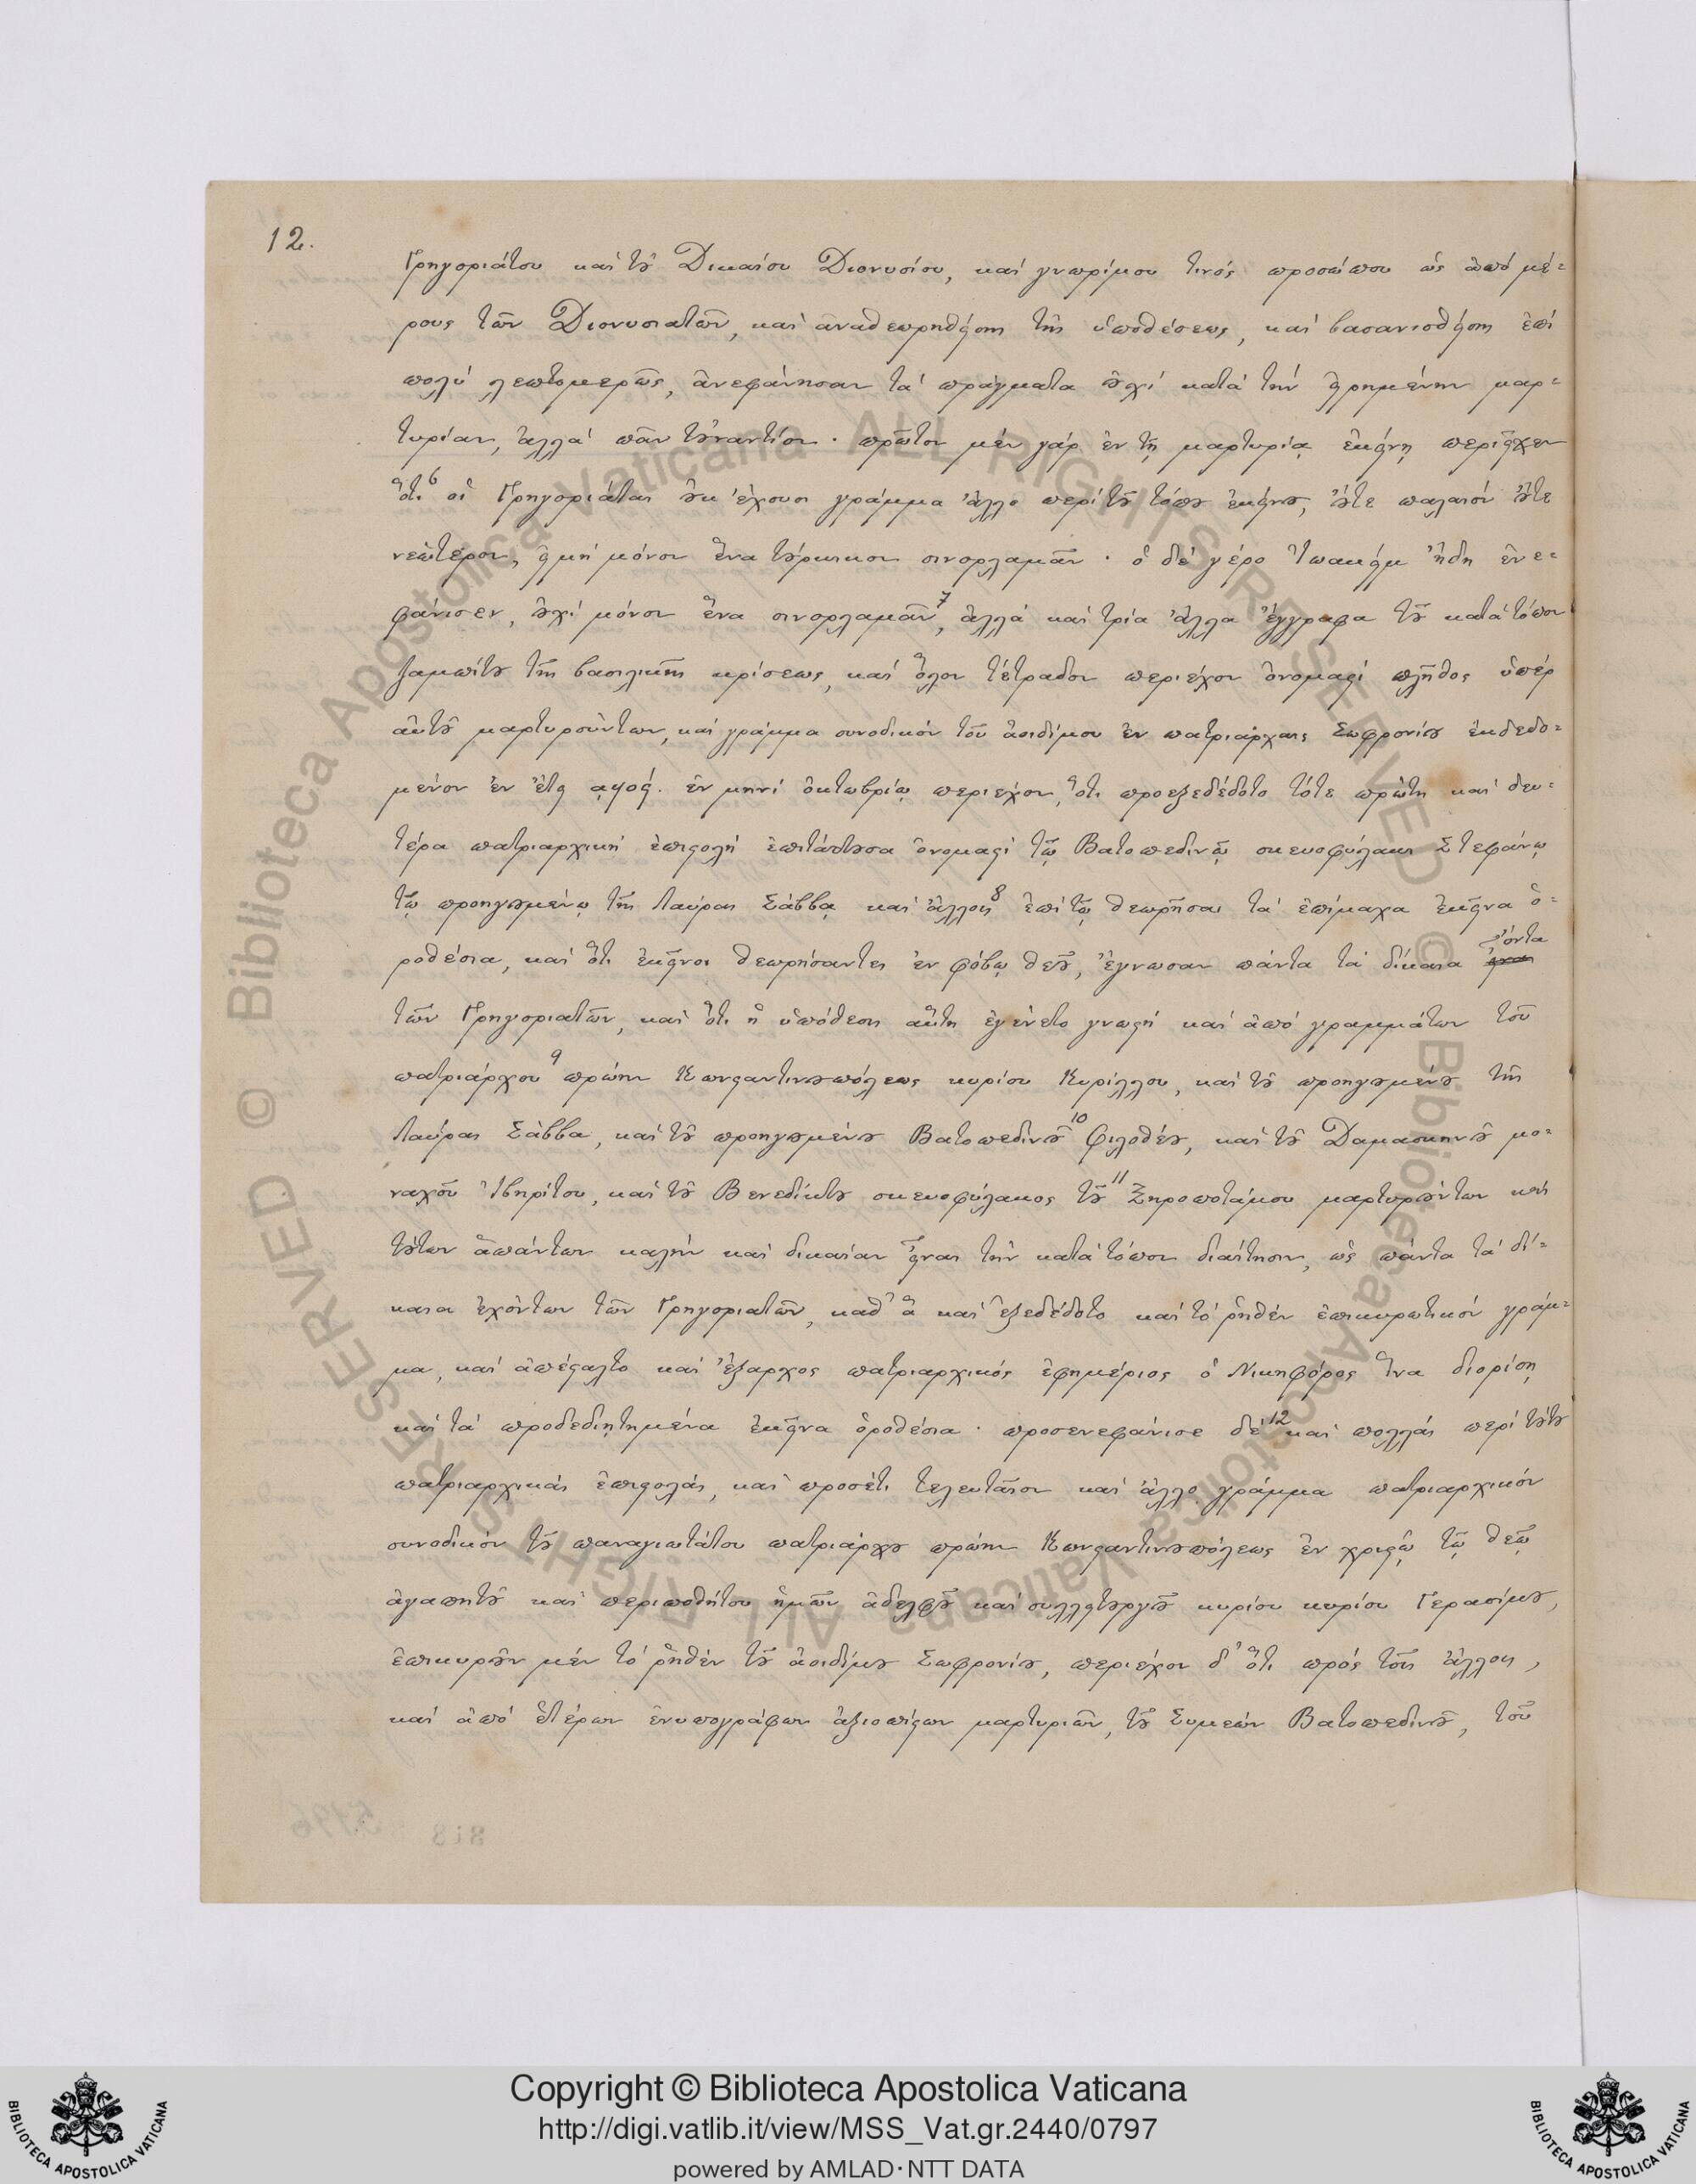 12.
Γρηγοριάτου καὶ τοῦ Δικαίου Διονυσίου, καὶ γνωρίμου τινὸς προσώπου ὡς ἀπὸ μέ-
ρους τῶν Διονυσιατῶν, καὶ ἀναθεωρηθείσης τῆς ὑποθέσεως, καὶ βασανισθείσης ἐπὶ
πολὺ λεπτομερῶς, ἀνεφάνησαν τὰ πράγματα οὐχὶ κατὰ τὴν εἰρημένην μαρ-
τυρίαν, ἀλλὰ πᾶν τοὐναντίον· πρῶτον μὲν γὰρ ἐν τῇ μαρτυρίᾳ ἐκείνῃ περιεῖχεν
ὅτι 6 οἱ Γρηγοριάται οὐκ ἔχουσι γράμμα ἄλλο περὶ τοῦ τόπου ἐκείνου, οὔτε παλαιὸν οὔτε
νεώτερον, εἰμὴ μόνον ἕνα τούρκικον σινορλαμᾶν· ὁ δὲ γέρο Ἰωακεὶμ ἤδη ἐνε-
φάνισεν, οὐχὶ μόνον ἕνα σινορλαμᾶν 7, ἀλλὰ καὶ τρία ἄλλα ἔγγραφα τοῦ κατὰ τόπον
ζαμπίτου τῆς βασιλικῆς κρίσεως, καὶ ὅλον τέτραδον περιέχον ὀνομαστὶ πλῆθος ὑπὲρ
αὐτοῦ μαρτυρούντων, καὶ γράμμα συνοδικὸν τοῦ ἀοιδίμου ἐν πατριάρχαις Σωφρονίου ἐκδεδο-
μένον ἐν ἔτει αψοϛ. ἐν μηνὶ ὀκτωβρίῳ περιέχον, ὅτι προεξεδέδοτο τότε πρώτη καὶ δευ-
τέρα πατριαρχικὴ ἐπιστολὴ ἐπιτάττουσα ὀνομαστὶ τῷ Βατοπεδινῷ σκευοφύλακι Στεφάνῳ
τῷ προηγουμένῳ τῆς Λαύρας Σάββᾳ καὶ ἄλλοις 8 ἐπὶ τῷ θεωρῆσαι τὰ ἐπίμαχα ἐκεῖνα ὁ-
ροθέσια, καὶ ὅτι ἐκεῖνοι θεωρήσαντες ἐν φόβῳ θεοῦ, ἔγνωσαν πάντα τὰ δίκαια ὄντα
τῶν Γρηγοριατῶν, καὶ ὅτι ἡ ὑπόθεσις αὕτη ἐγένετο γνωστὴ καὶ ἀπὸ γραμμάτων τοῦ
πατριάρχου 9 πρώην Κωνσταντινουπόλεως κυρίου Κυρίλλου, καὶ τοῦ προηγουμένου τῆς
Λαύρας Σάββα, καὶ τοῦ προηγουμένου Βατοπεδινοῦ 10 Φιλοθέου, καὶ τοῦ Δαμασκηνοῦ μο-
ναχοῦ Ἰβηρίτου, καὶ τοῦ Βενεδίκτου σκευοφύλακος τοῦ 11 Ξηροποτάμου μαρτυρούντων καὶ
τούτων ἁπάντων καλὴν καὶ δικαίαν εἶναι τὴν κατὰ τόπον διαίτησιν, ὡς πάντα τὰ δί-
καια ἐχόντων τῶν Γρηγοριατῶν, καθ' ἃ καὶ ἐξεδέδοτο καὶ τὸ ῥηθὲν ἐπικυρωτικὸν γράμ-
μα, καὶ ἀπέσταλτο καὶ ἔξαρχος πατριαρχικὸς ἐφημέριος ὁ Νικηφόρος ἵνα διορίσῃ
καὶ τὰ προδεδιῃτημένα ἐκεῖνα ὁροθέσια· προσενεφάνισε δὲ 12 καὶ πολλὰς περὶ τούτου
πατριαρχικὰς ἐπιστολὰς, καὶ προσέτι τελευταῖον καὶ ἄλλο γράμμα πατριαρχικὸν
συνοδικὸν τοῦ παναγιωτάτου πατριάρχου πρώην Κωνσταντινουπόλεως ἐν χριστῷ τῷ θεῷ
ἀγαπητοῦ καὶ περιποθήτου ἡμῶν ἀδελφοῦ καὶ συλλειτουργοῦ κυρίου κυρίου Γερασίμου,
ἐπικυροῦν μὲν τὸ ῥηθὲν τοῦ ἀοιδίμου Σωφρονίου, περιέχον δ' ὅτι πρὸς τοῖς ἄλλοις,
καὶ ἀπὸ ἑτέρων ἐνυπογράφων ἀξιοπίστων μαρτυριῶν, τοῦ Συμεὼν Βατοπεδινοῦ, τοῦ
© Biblioteca Apostolica Vaticana ALL RIGHTS RESERVED
© Biblioteca Apostolica Vaticana ALL RIGHTS RESERVED
Copyright © Biblioteca Apostolica Vaticana
http://digi.vatlib.it/view/MSS_Vat.gr.2440/0797
powered by AMLAD·NTT DATA
BIBLIOTECA APOSTOLICA VATICANA
BIBLIOTECA APOSTOLICA VATICANA